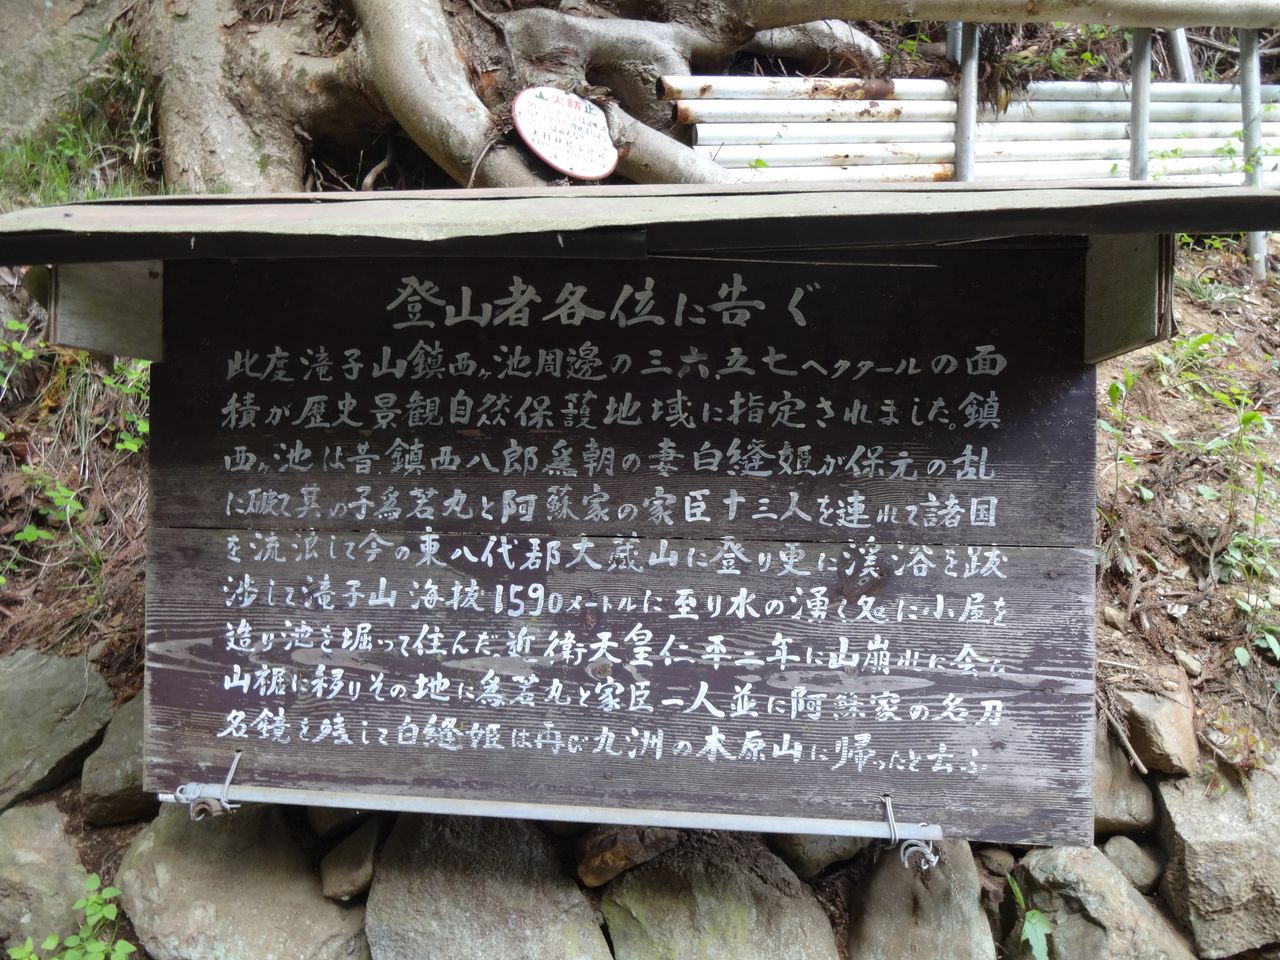 火防止
登山者各位に告ぐ
此度滝子山鎮西ヶ池周邊の三六.五七ヘクタールの面
積が歴史景観自然保護地域に指定されました。鎮
西ヶ池は昔鎮西八郎為朝の妻白縫姫が保元の乱
に破れて其の子為若丸と阿蘇家の家臣十三人を連れて諸国
を流浪して今の東八代郡大蔵山に登り更に渓浴を跋
渉して滝子山海抜1590メートルに至り水の湧く処に小屋を
造り池を堀って住んだ、近衛天皇仁平二年に山崩れに会い
山裾に移りその地に為若丸と家臣一人並に阿蘇家の名刀
名鏡を残して白縫姫は再び九洲の木原山に帰ったと云ふ